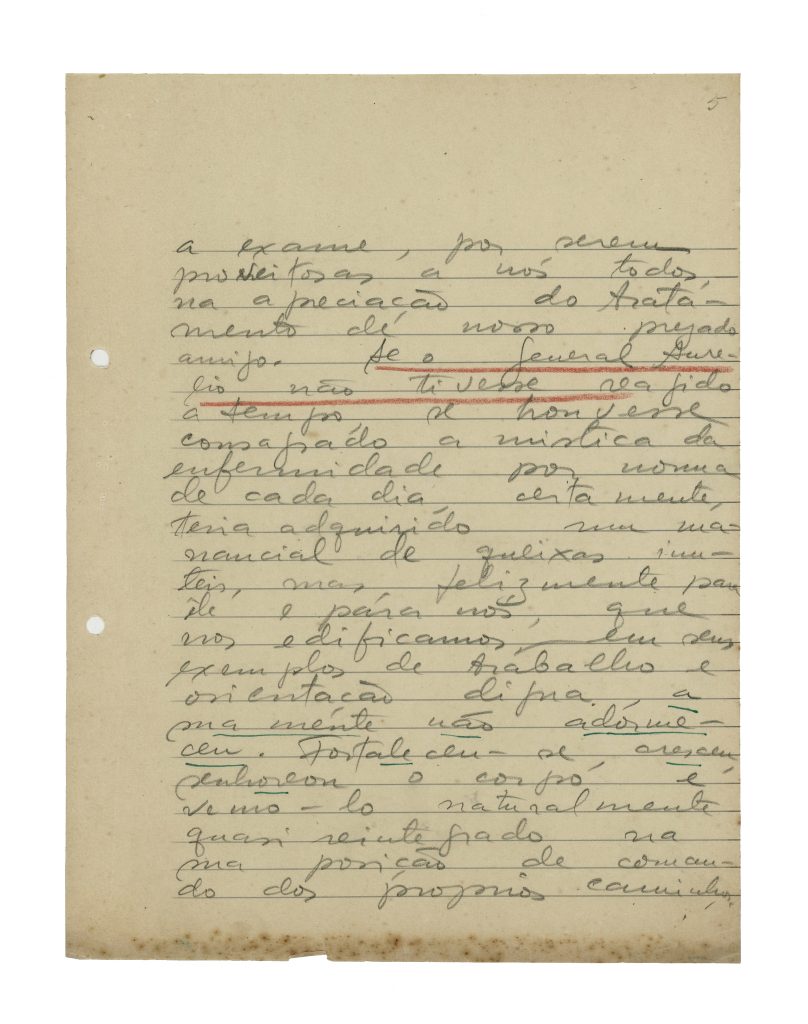 5
a exame, por serem
proveitosas a nós todos,
na apreciação do trata-
mento de nosso prezado
amigo. Se o general Aure-
lio não tivesse reagido
a tempo, se houvesse
consagrado a mistica da
enfermidade por norma
de cada dia, certamente,
teria adquirido um ma-
nancial de queixas inu-
teis, mas, felizmente para
êle e pára nós, que
nos edificamos, em seus
exemplos de trabalho e
orientação digna, a
sua mente não adórme-
ceu. Fortaleceu-se, cresceu,
senhoreou o corpo, e
vemo-lo naturalmente
quasi reintegrado na
sua posição de coman-
do dos próprios caminhos.